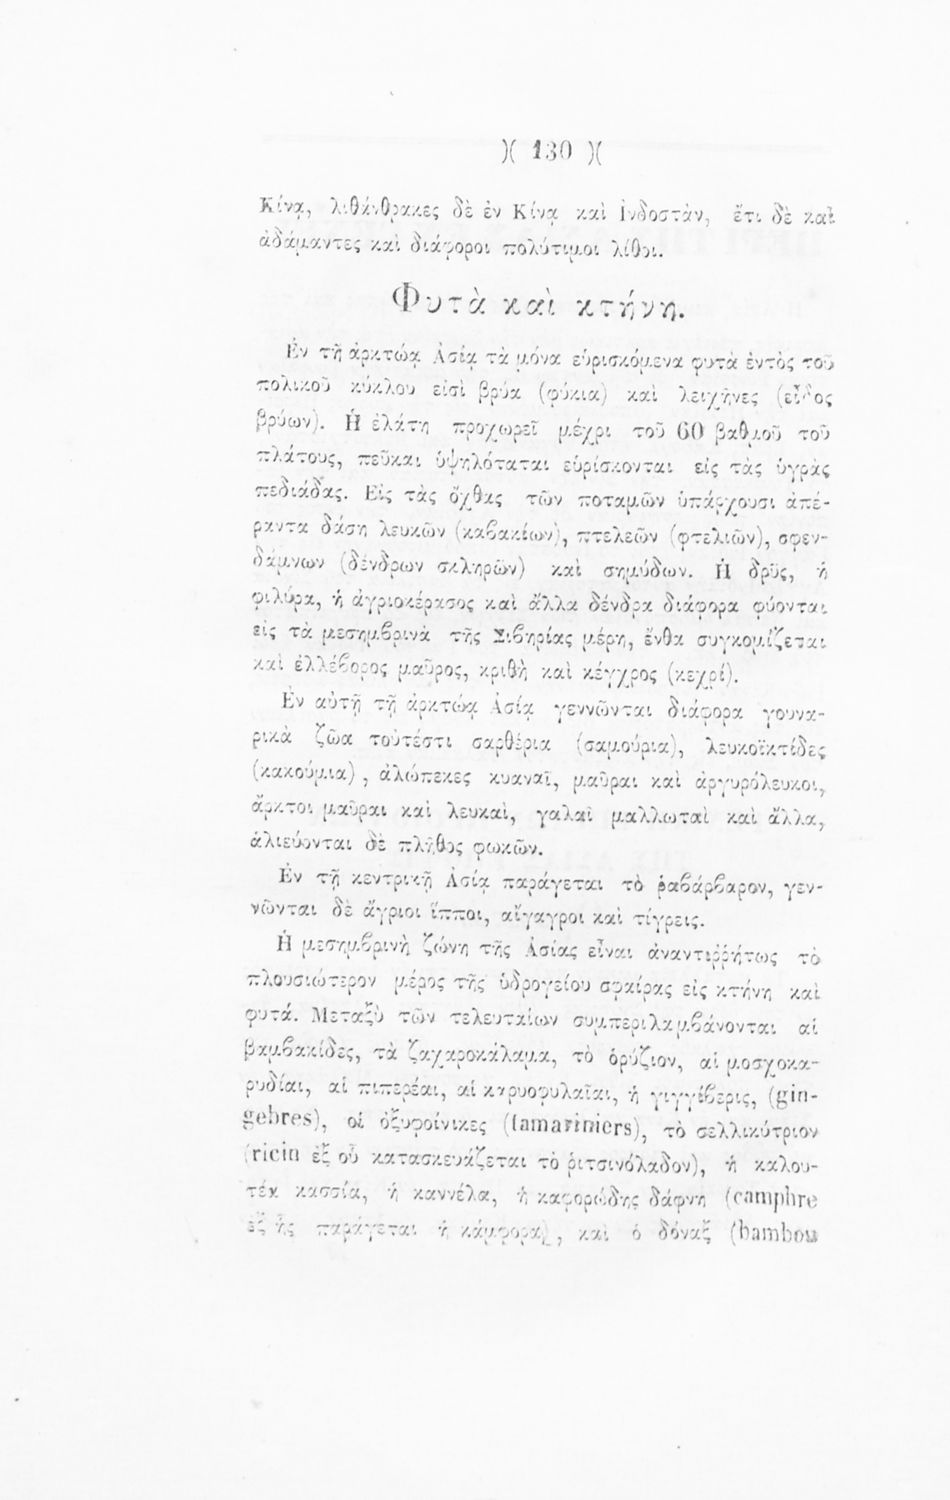 )( 130 )(
Κίνᾳ, λιθάνθρακες δὲ ἐν Κίνᾳ καὶ Ἰνδοστὰν, ἔτι δὲ καὶ
ἀδάμαντες καὶ διάφοροι πολύτιμοι λίθοι.
Φυτὰ καὶ κτήνη.
Ἐν τῇ ἀρκτώᾳ Ἀσίᾳ τὰ μόνα εὑρισκόμενα φυτὰ ἐντὸς τοῦ
πολικοῦ κύκλου εἰσὶ βρύα (φύκια) καὶ λειχῆνες (εἶδος
βρύων). Ἡ ἐλάτη προχωρεῖ μέχρι τοῦ 60 βαθμοῦ τοῦ
πλάτους, πεῦκαι ὑψηλόταται εὑρίσκονται εἰς τὰς ὑγρὰς
πεδιάδας. Εἰς τὰς ὄχθας τῶν ποταμῶν ὑπάρχουσι ἀπέ-
ραντα δάση λευκῶν (καβακίων), πτελεῶν (φτελιῶν), σφεν-
δάμνων (δένδρων σκληρῶν) καὶ σημύδων. Ἡ δρῦς, ἡ
φιλύρα, ἡ ἀγριοκέρασος καὶ ἄλλα δένδρα διάφορα φύονται
εἰς τὰ μεσημβρινὰ τῆς Σιβηρίας μέρη, ἔνθα συγκομίζεται
καὶ ἐλλέβορος μαῦρος, κριθὴ καὶ κέγχρος (κεχρί).
Ἐν αὐτῇ τῇ ἀρκτώᾳ Ἀσίᾳ γεννῶνται διάφορα γουνα-
ρικὰ ζῶα τοὐτέστι σαρθέρια (σαμούρια), λευκοϊκτίδες
(κακούμια), ἀλώπεκες κυαναῖ, μαῦραι καὶ ἀργυρόλευκοι,
ἄρκτοι μαῦραι καὶ λευκαὶ, γαλαῖ μαλλωταὶ καὶ ἄλλα,
ἁλιεύονται δὲ πλῆθος φωκῶν.
Ἐν τῇ κεντρικῇ Ἀσίᾳ παράγεται τὸ ῥαβάρβαρον, γεν-
νῶνται δὲ ἄγριοι ἵπποι, αἴγαγροι καὶ τίγρεις.
Ἡ μεσημβρινὴ ζώνη τῆς Ἀσίας εἶναι ἀναντιῤῥήτως τὸ
πλουσιώτερον μέρος τῆς ὑδρογείου σφαίρας εἰς κτήνη καὶ
φυτά. Μεταξὺ τῶν τελευταίων συμπεριλαμβάνονται αἱ
βαμβακίδες, τὰ ζαχαροκάλαμα, τὸ ὀρύζιον, αἱ μοσχοκα-
ρυδίαι, αἱ πιπερέαι, αἱ καρυοφυλαῖαι, ἡ γιγγίβερις, (gin-
gebres), οἱ ὀξυφοίνικες (tamariniers), τὸ σελλικύτριον
(ricin ἐξ οὗ κατασκευάζεται τὸ ῥιτσινόλαδον), ἡ καλου-
τέα κασσία, ἡ καννέλα, ἡ καφορώδης δάφνη (camphre
ἐξ ἧς παράγεται ἡ κάμφορα), καὶ ὁ δόναξ (bambou